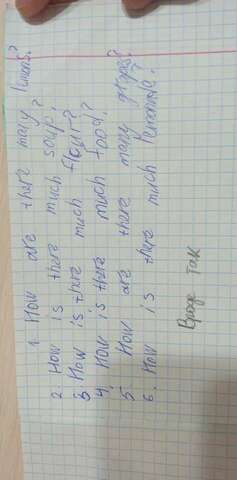 1. How are there many lemons?
2. How is there much soup?
3. How is there much flour?
4. How is there much food?
5. How are there many grapes?
6. How is there much lemonade?
Вроде так